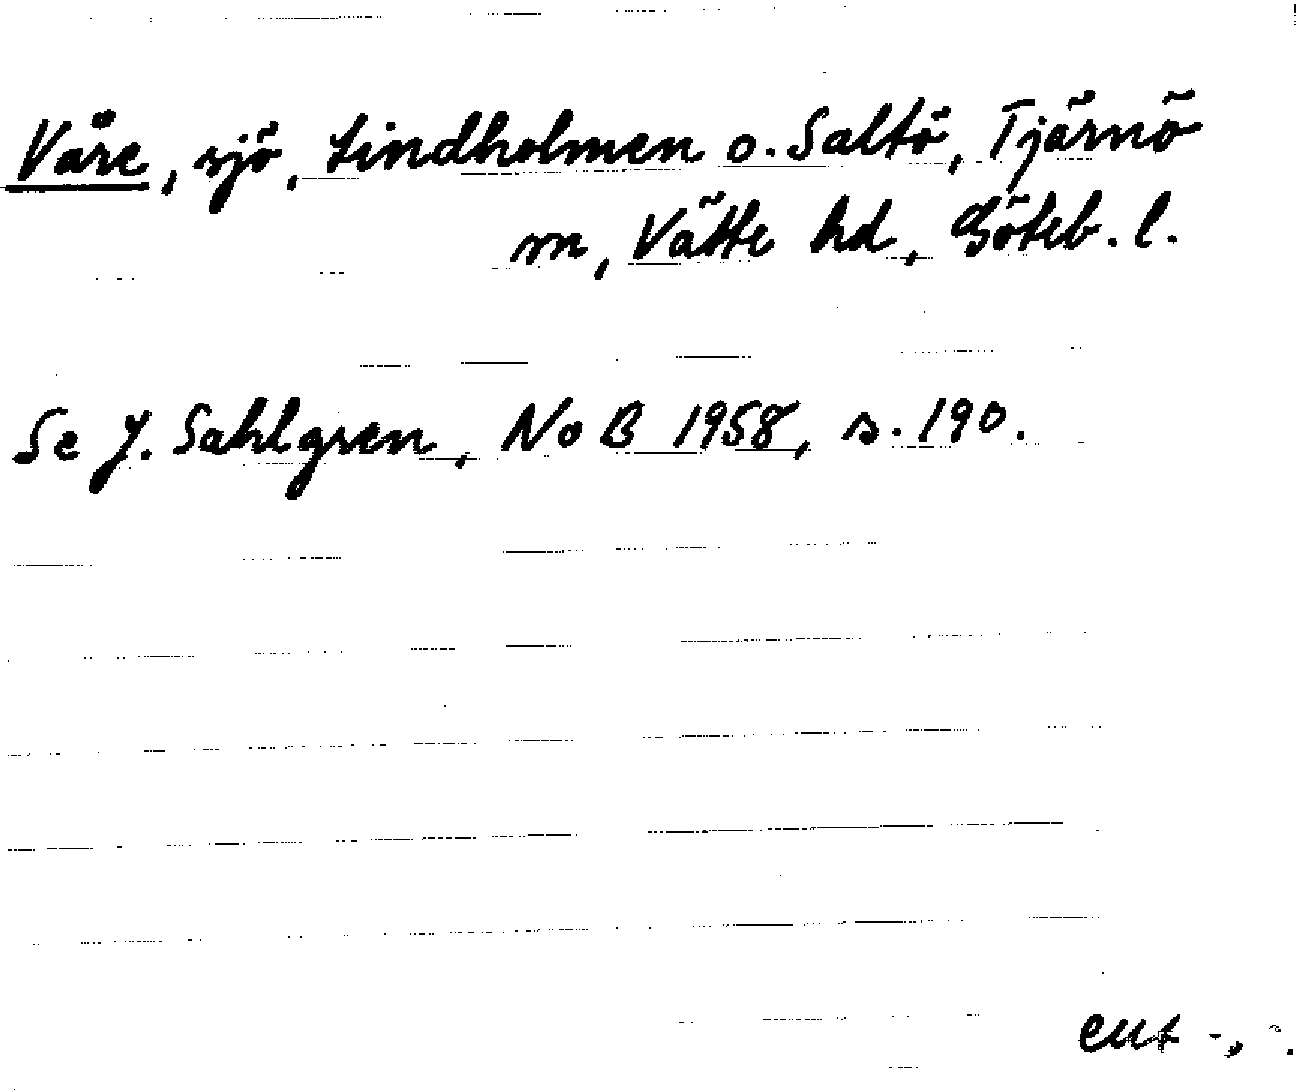 Våre, sjö, Lindholmen o. Saltö, Tjärnö
sn, Vätte hd, Göteb. l.
Se J. Sahlgren, NoB 1958, s. 190.